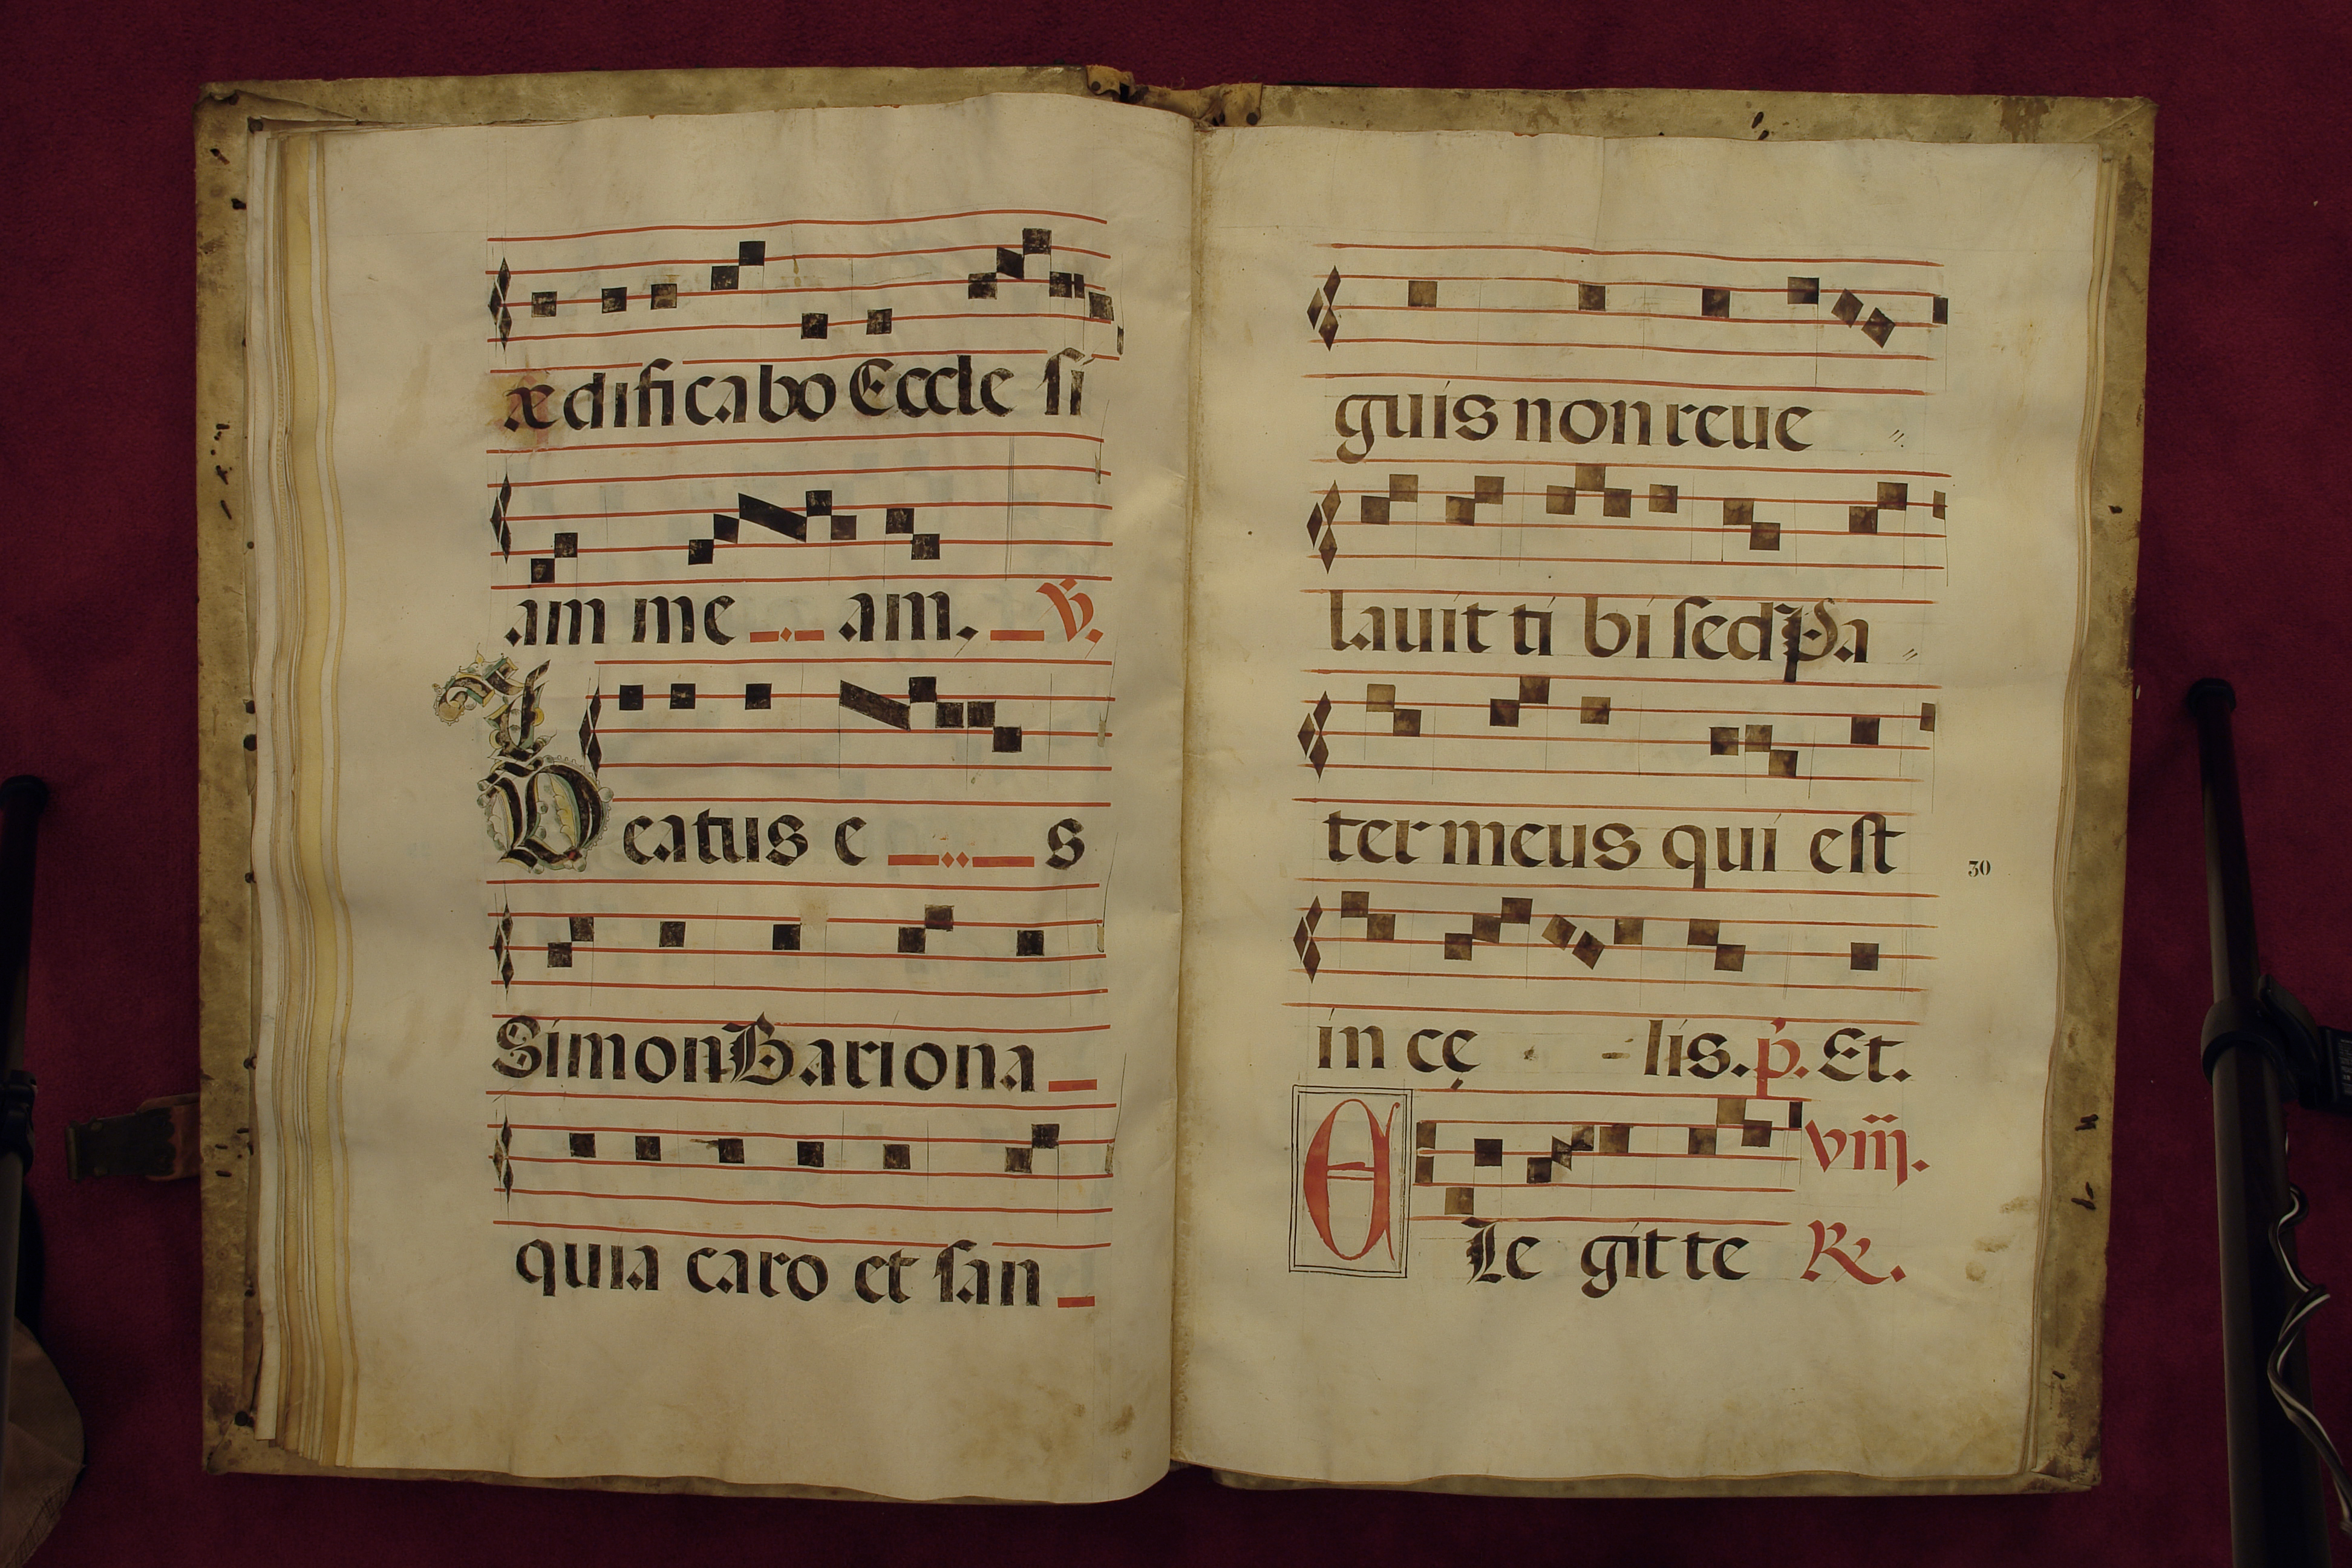 ædificabo Eccle si
am me am. ℣.
Beatus e s
Simon Bariona
quia caro et san
guis non reue
lauit ti bi sed Pa
ter meus qui est
30
in cę - lis. p. Et.
viij.
E Le git te ℟.